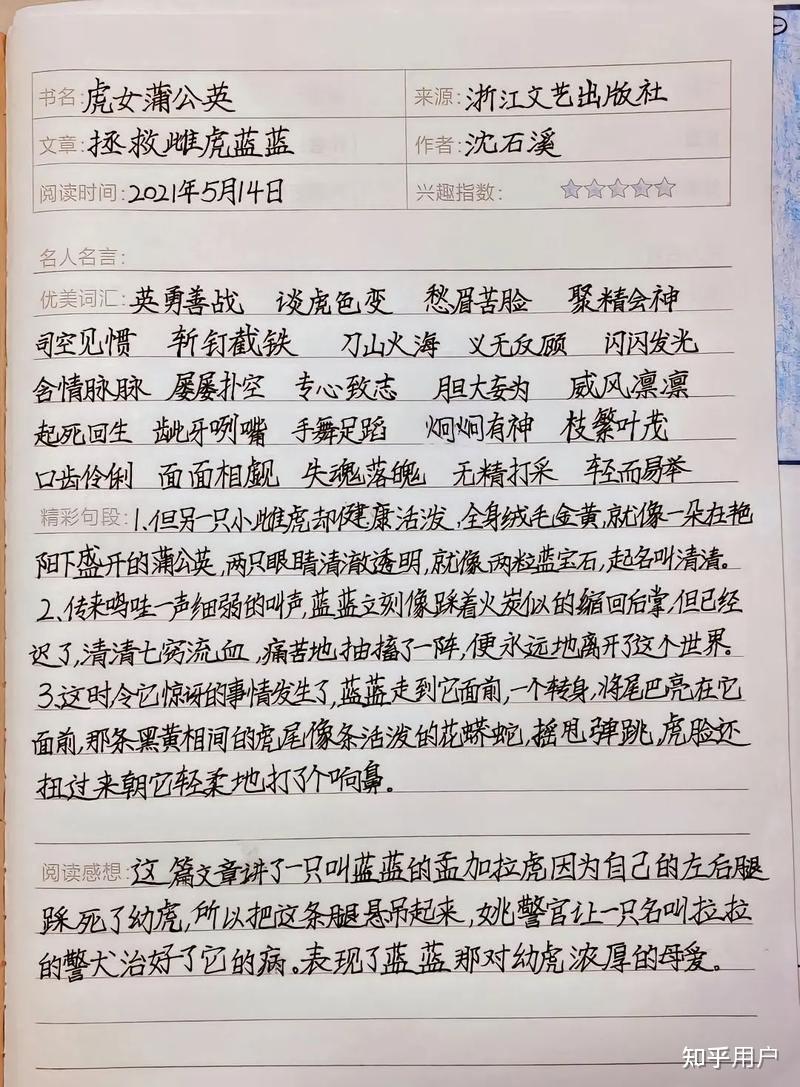 书名:虎女蒲公英 来源:浙江文艺出版社
文章:拯救雌虎蓝蓝 作者:沈石溪
阅读时间:2021年5月14日 兴趣指数:
名人名言:
优美词汇:英勇善战 谈虎色变 愁眉苦脸 聚精会神
司空见惯 斩钉截铁 刀山火海 义无反顾 闪闪发光
含情脉脉 屡屡扑空 专心致志 胆大妄为 威风凛凛
起死回生 龇牙咧嘴 手舞足蹈 炯炯有神 枝繁叶茂
口齿伶俐 面面相觑 失魂落魄 无精打采 轻而易举
精彩句段:1、但另一只小雌虎却健康活泼,全身绒毛金黄,就像一朵在艳
阳下盛开的蒲公英,两只眼睛清澈透明,就像两粒蓝宝石,起名叫清清。
2、传来呜哇一声细弱的叫声,蓝蓝立刻像踩着火炭似的缩回后掌,但已经
迟了,清清七窍流血,痛苦地抽搐了一阵,便永远地离开了这个世界。
3、这时令它惊讶的事情发生了,蓝蓝走到它面前,一个转身,将尾巴亮在它
面前,那条黑黄相间的虎尾像条活泼的花蟒蛇,摇甩弹跳,虎脸还
扭过来朝它轻柔地打了个响鼻。
阅读感想:这篇文章讲了一只叫蓝蓝的孟加拉虎因为自己的左后腿
踩死了幼虎,所以把这条腿悬吊起来,姚警官让一只名叫拉拉
的警犬治好了它的病。表现了蓝蓝那对幼虎浓厚的母爱。
知乎用户